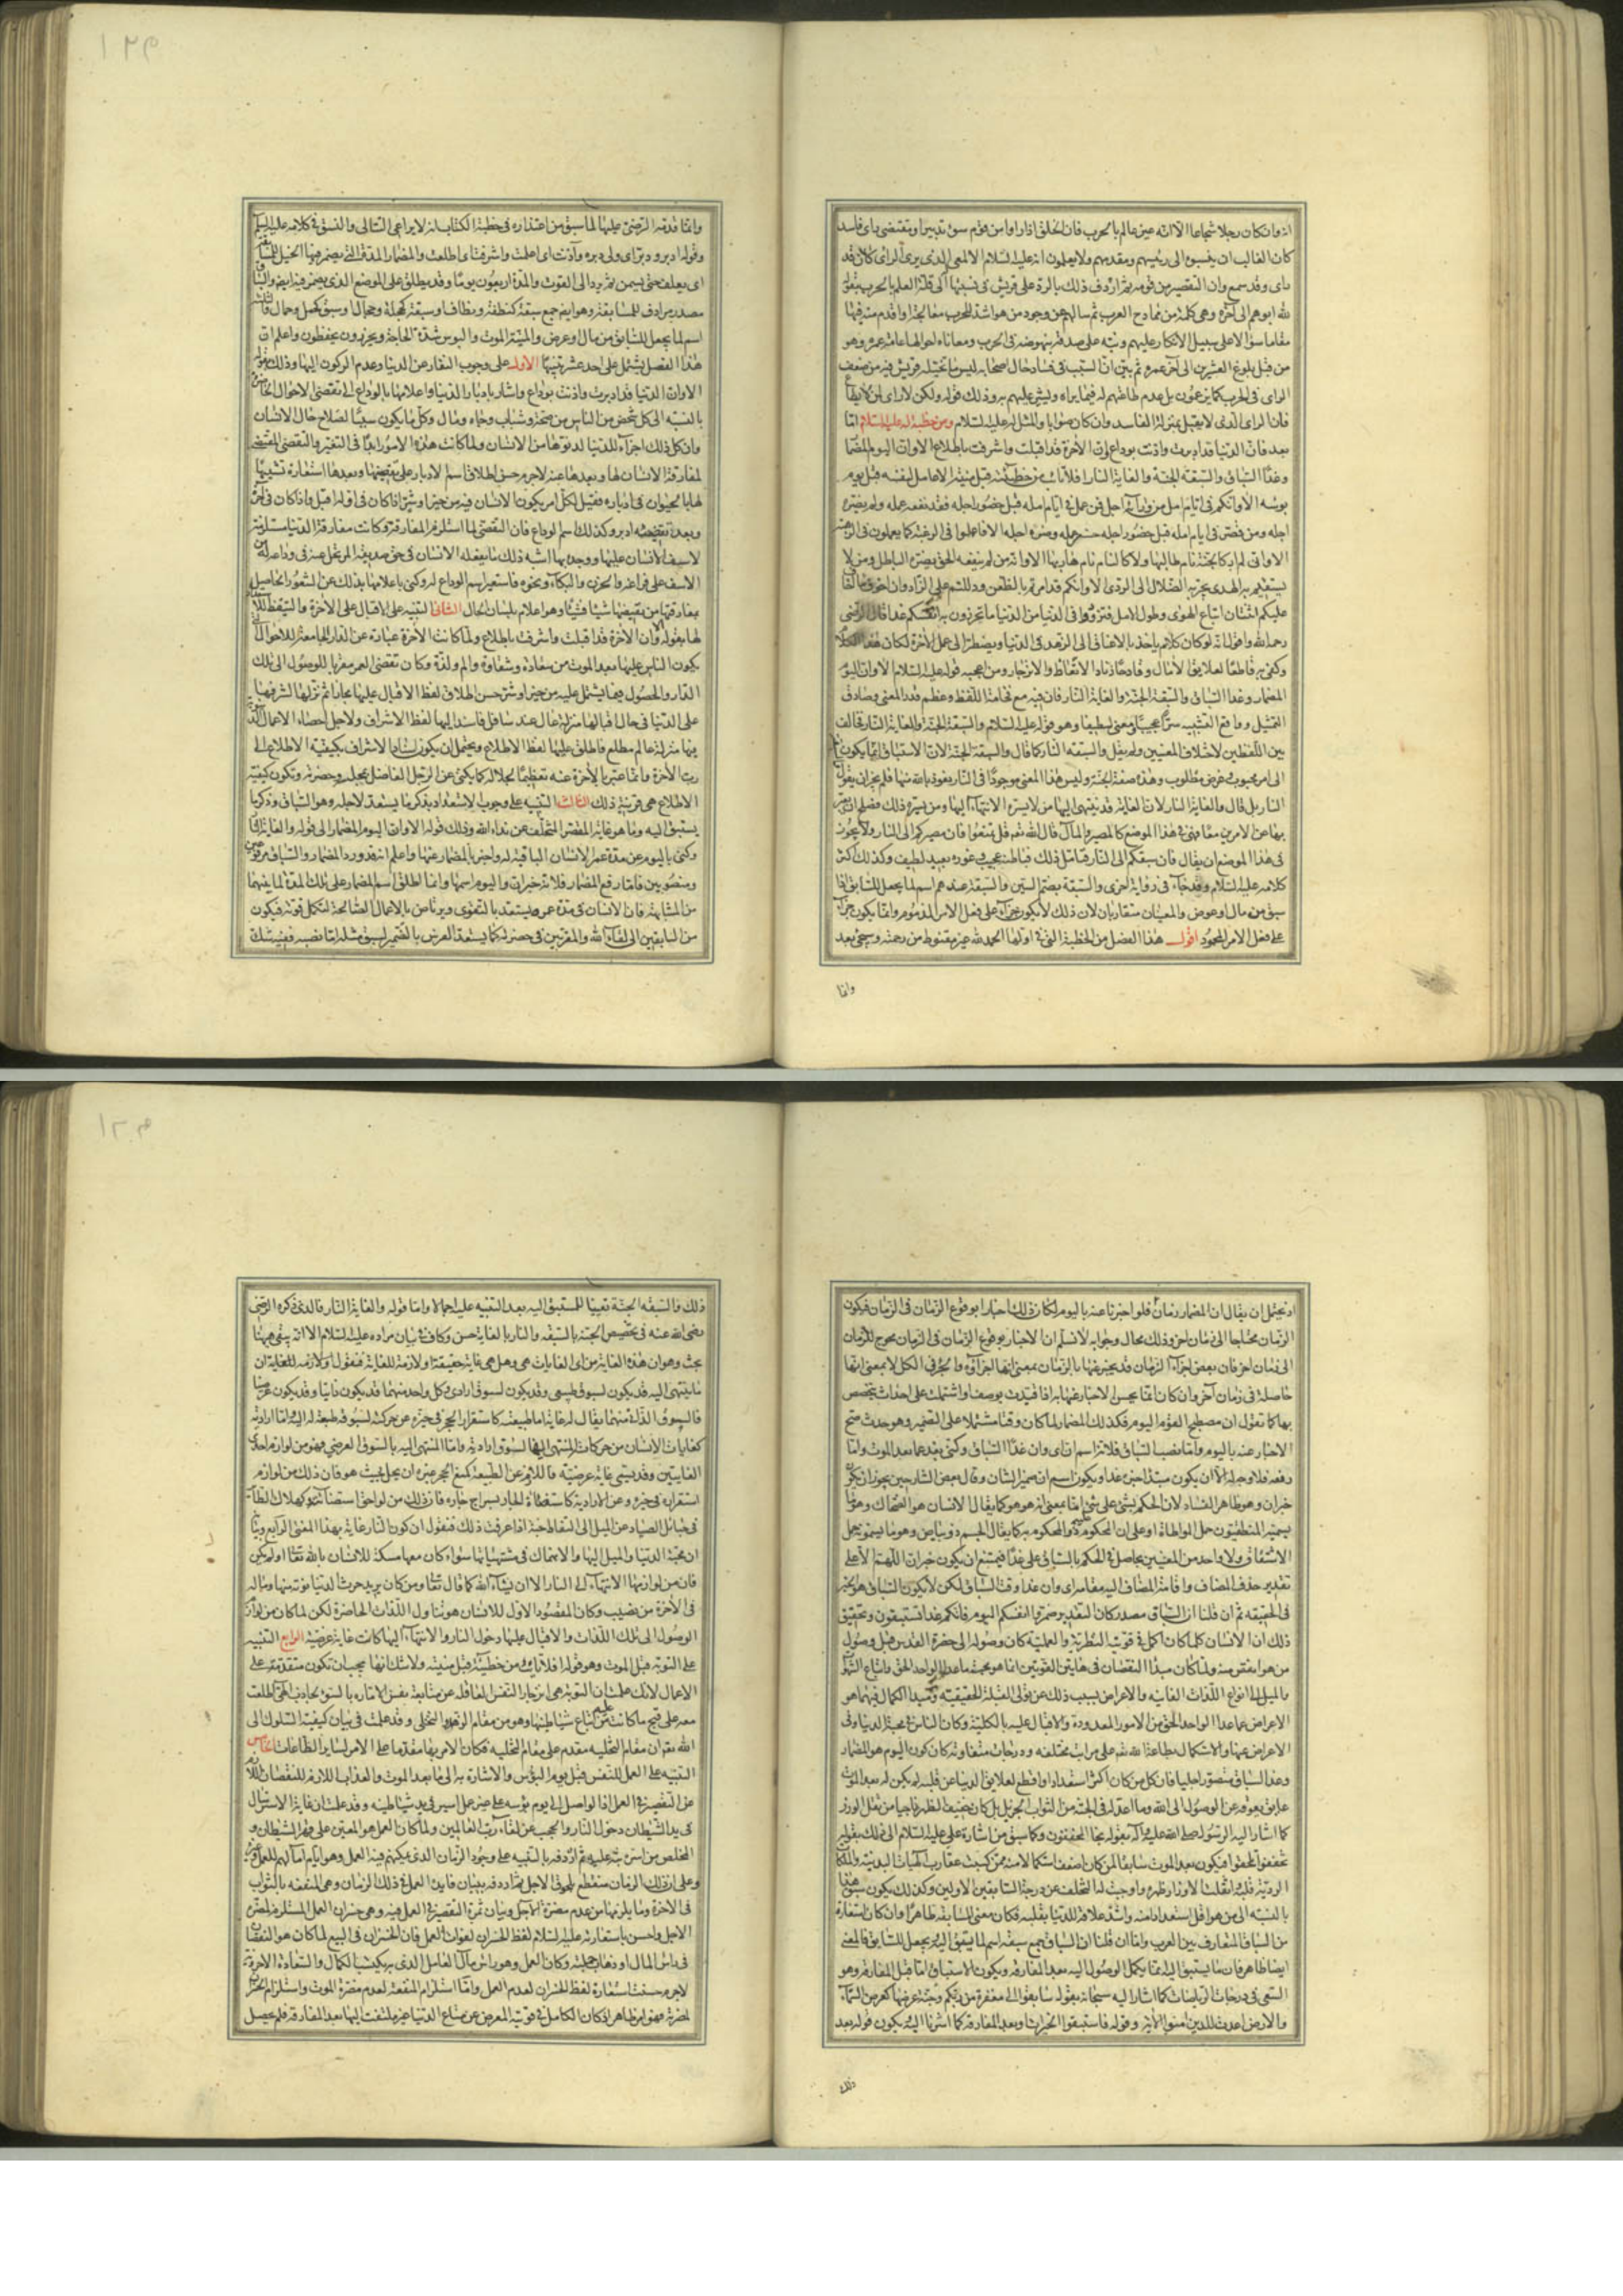 انه وان كان رجلا شجاعا الا انه غير عالم بالحرب فان الخلق اذا راوا من قوم سوء تدبير او مقتضى راى فاسد
كان الغالب ان ينسبوه الى رئيسهم ومقدمهم ولا يعلمون انه عليه السلام الالمعى الذى يرى الراى كان قد
راى وقد سمع وان التقصير من قومه ثم اردف ذلك بالرد على قريش فى نسبتها اليه قلة العلم بالحرب بقوله
لله ابوهم الى آخره وهى كلمة من تمادح العرب ثم سالهم عن وجود من هو اشد للحرب معالجة او اقدم منه فيها
مقاما سؤالا على سبيل الانكار عليهم ونبه على صدقه بنهوضه فى الحرب ومعاناة احوالها عامة عمره وهو
من قبل بلوغ العشرين الى آخر عمره ثم بين ان السبب فى فساد حال اصحابه ليس ما تخيله قريش فيه من ضعف
الراى فى الحرب كما يزعمون بل عدم طاعتهم له فيما يراه ويشير عليهم به وذلك قوله ولكن لا راى لمن لا يطاع
فان الراى الذى لا يقبل بمنزلة الفاسد وان كان صوابا والمثل له عليه السلام ومن خطبة له عليه السلام اما
بعد فان الدنيا قد ادبرت واذنت بوداع وان الآخرة قد اقبلت واشرفت باطلاع الا وان اليوم المضمار
وغدا السباق والسبقة الجنة والغاية النار افلا تائب من خطيئته قبل منيته الا عامل لنفسه قبل يوم
بوسه الا وانكم فى ايام امل من ورائه اجل فمن عمل فى ايام امله قبل حضور اجله فقد نفعه عمله ولم يضره
اجله ومن قصر فى ايام امله قبل حضور اجله خسر عمله وضره اجله الا فاعملوا فى الرغبة كما تعملون فى الرهبة
الا وانى لم ار كالجنة نام طالبها ولا كالنار نام هاربها الا وانه من لم ينفعه الحق يضره الباطل ومن لا
يستقيم به الهدى يجر به الضلال الى الردى الا وانكم قد امرتم بالظعن ودللتم على الزاد وان اخوف ما اخاف
عليكم اثنتان اتباع الهوى وطول الامل فتزودوا فى الدنيا من الدنيا ما تحرزون به انفسكم غدا قال الرضى
رحمه الله واقول انه لو كان كلام ياخذ بالاعناق الى الزهد فى الدنيا ويضطر الى عمل الآخرة لكان هذا الكلام
وكفى به قاطعا لعلايق الآمال وقادحا زناد الاتعاظ والازدجار ومن اعجبه قوله عليه السلام الا وان اليوم
المضمار وغدا السباق والسبقة الجنة والغاية النار فان فيه مع فخامة اللفظ وعظم قدر المعنى وصادق
التمثيل وواقع التشبيه سرا عجيبا ومعنى لطيفا وهو قوله عليه السلام والسبقة الجنة والغاية النار فخالف
بين اللفظين لاختلاف المعنيين ولم يقل والسبقة النار كما قال والسبقة الجنة لان الاستباق انما يكون
الى امر محبوب وغرض مطلوب وهذه صفة الجنة وليس هذا المعنى موجودا فى النار نعوذ بالله منها فلم يجز ان يقول
النار بل قال والغاية النار لان الغاية قد ينتهى اليها من لا يسره الانتهاء اليها ومن يسره ذلك فصلح ان يعبر
بها عن الامرين معا فهى فى هذا الموضع كالمصير والمآل قال الله تعم قل تمتعوا فان مصيركم الى النار ولا يجوز
فى هذا الموضع ان يقال فان سبقكم الى النار فتامل ذلك فباطنه عجيب وغوره بعيد لطيف وكذلك اكثر
كلامه عليه السلام وقد جاء فى رواية اخرى والسبقة بضم السين والسبقة عندهم اسم لما يجعل للسابق اذا
سبق من مال او عوض والمعنيان متقاربان لان ذلك لا يكون جزاء على فعل الامر المذموم وانما يكون جزاء
على فعل الامر المحمود اقول هذا الفصل من الخطبة التى فى اولها الحمد لله غير مقنوط من رحمته وسيجئ بعد
وانما
وانما قدمه الرضى عليها لما سبق من اعتذاره فى خطبة الكتاب انه لا يراعى التتالى والنسق فى كلامه عليه السلام
وقوله ادبر ودبر اى ولى دبره وآذنت اى اعلمت واشرفت اى اطلعت والمضمار المدة التى يضمر فيها الخيل للسباق
اى يعلف حتى يسمن ثم يرد الى القوت والمدة اربعون يوما وقد يطلق على الموضع الذى يضمر فيه ايضا والسباق
مصدر مرادف للمسابقة وهو ايضا جمع سبقة كنطفة ونطاف او سبقة كحجلة وحجال او سبق كجمل وجمال والسبقة
اسم لما يجعل للسابق من مال او عرض والمنية الموت والبوس شدة الحاجة وتحرزون تحفظون واعلم ان
هذا الفصل يشتمل على احد عشر تنبيها الاول على وجوب النفار عن الدنيا وعدم الركون اليها وذلك بقوله
الا وان الدنيا قد ادبرت واذنت بوداع واشار بادبار الدنيا واعلامها بالوداع الى تقضى الاحوال الحاضرة
بالنسبة الى كل شخص من الناس من صحة وشباب وجاه ومال وكل ما يكون سببا لصلاح حال الانسان
وان كل ذلك اجزاء للدنيا لدنوها من الانسان ولما كانت هذه الامور ابدا فى التغير والتقضى المقتضى
لمفارقة الانسان لها وبعدها عنه لاجرم حسن اطلاق اسم الادبار على تقضيها وبعدها استعارة تشبيها
لها بالحيوان فى ادباره فقيل لكل امر يكون الانسان فيه من خير او شر اذا كان فى اوله اقبل واذا كان فى آخره
وبعد تقضيه ادبر وكذلك اسم الوداع فان التقضى لما استلزم المفارقة وكانت مفارقة الدنيا مستلزمة
لاسف الانسان عليها ووجده بها اشبه ذلك ما يفعله الانسان فى حق صديقه المرتحل عنه فى وداعه له من
الاسف على فراقه والحزن والبكاء ونحوه فاستعير اسم الوداع له وكنى باعلامها بذلك عن الشعور الحاصل
بمفارقتها من تقضيها شيئا فشيئا وهو اعلام بلسان الحال الثانى التنبيه على الاقبال على الآخرة والتيقظ
لها بقوله وان الآخرة قد اقبلت واشرفت باطلاع ولما كانت الآخرة عبارة عن الدار الجامعة للاحوال التى
يكون الناس عليها بعد الموت من سعادة وشقاوة والم ولذة وكان تقضى العمر مقربا للوصول الى تلك
الدار والحصول فيما يشتمل عليه من خير او شر حسن اطلاق لفظ الاقبال عليها مجازا ثم نزلها لشرفها
على الدنيا فى حال اقبالها منزلة عال عند سافل فاسند اليها لفظ الاشراف ولاجل احصاء الاعمال
فيها منزلة عالم مطلع فاطلق عليها لفظ الاطلاع ويحتمل ان يكون اسناد الاشراف بكيفية الاطلاع الى
رب الآخرة وانما عبر بالآخرة عنه تعظيما لجلاله كما يكنى عن الرجل الفاضل بمجلسه وحضرته وتكون كيفية
الاطلاع هى قرينة ذلك الثالث التنبيه على وجوب الاستعداد بذكر ما يستعد لاجله وهو السباق وذكر ما
يستبق اليه وما هو غاية المقصر المتخلف عن نداء الله وذلك قوله الا وان اليوم المضمار الى قوله والغاية النار
وكنى باليوم عن مدة عمر الانسان الباقية له واخبر بالمضمار عنها واعلم انه قد ورد المضمار والسباق مرفوعين
ومنصوبين فاما رفع المضمار فلانه خبر ان واليوم اسمها وانما اطلق اسم المضمار على تلك المدة لما بينهما
من المشابهة فان الانسان فى مدة عمره يستعد بالتقوى ويرتاض بالاعمال الصالحة لتكمل قوته فيكون
من السابقين الى لقاء الله والمقربين فى حضرته كما يستعد الفرس بالتضمير لسبق مثله اما نصبه ففيه شك
اذ يحتمل ان يقال ان المضمار زمان فلو اخبرنا عنه باليوم لكان ذلك اخبارا بوقوع الزمان فى الزمان فيكون
الزمان محتاجا الى زمان آخر وذلك محال وجوابه لا نسلم ان الاخبار بوقوع الزمان فى الزمان يحوج للزمان
الى زمان آخر فان بعض اجزاء الزمان قد يخبر عنها بالزمان بمعنى انها اجزاؤه والجزء فى الكل لا بمعنى انها
حاصلة فى زمان آخر وان كان انما يحسن الاخبار عنها به اذا قيدت بوصف واشتملت على احداث يتخصص
بها كما تقول ان مصطبح القوم اليوم فكذلك المضمار لما كان وقتا مشتملا على التضمير وهو حدث صح
الاخبار عنه باليوم واما نصب السباق فلانه اسم ان اى وان غدا السباق وكنى بغد عما بعد الموت واما
رفعه فلا وجه له الا ان يكون مبتدا خبره غدا ويكون اسم ان ضمير الشان وقال بعض الشارحين يجوز ان يكون
خبر ان وهو ظاهر الفساد لان الحكم بشئ على شئ اما بمعنى انه هو هو كما يقال الانسان هو الضحاك وهو ما
يسميه المنطقيون حمل المواطاة او على ان المحكوم عليه ذو المحكوم به كما يقال الجسم ذو بياض وهو ما يسمونه حمل
الاشتقاق ولا واحد من المعنيين بحاصل فى الحكم بالسباق على غد فيمتنع ان يكون خبر ان اللهم الا على
تقدير حذف المضاف واقامة المضاف اليه مقامه اى وان غدا وقت السباق لكن لا يكون السباق هو الخبر
فى الحقيقة ثم ان قلنا ان السباق مصدر كان التقدير ضمروا انفسكم اليوم فانكم غدا تستبقون وتحقيق
ذلك ان الانسان كلما كان اكمل فى قوتيه النظرية والعملية كان وصوله الى حضرة القدس قبل وصول
من هو انقص منه ولما كان مبدا النقصان فى هاتين القوتين انما هو محبة ما عدا الواحد الحق واتباع الشهوات
والميل الى انواع اللذات الفانية والاعراض بسبب ذلك عن تولى القبلة الحقيقية ومبدا الكمال فيهما هو
الاعراض عما عدا الواحد الحق من الامور المعدودة والاقبال عليه بالكلية وكان الناس فى محبة الدنيا وفى
الاعراض عنها والاستكمال بطاعة الله تعم على مراتب مختلفة ودرجات متفاوتة كان كون اليوم هو المضمار
وغدا السباق متصورا جليا فان كل من كان اكثر استعدادا واقطع لعلايق الدنيا عن قلبه لم يكن له بعد الموت
عايق يعوقه عن الوصول الى الله وما اعد له فى الجنة من الثواب الجزيل بل كان خفيف الظهر ناجيا من ثقل الوزر
كما اشار اليه الرسول صلى الله عليه وآله بقوله نجا المخففون وكما سبق من اشارة على عليه السلام الى ذلك بقوله
تخففوا تلحقوا فيكون بعد الموت سابقا لمن كان اضعف استكمالا منه ممن كسبت عقارب الهيات البدنية والملكات
الردية قلبه واثقلت الاوزار ظهره واوجبت له التخلف عن درجة السابقين الاولين وكذلك يكون سبق هذا
بالنسبة الى من هو اقل استعدادا منه واشد علاقة للدنيا بقلبه فكان معنى المسابقة ظاهرا وان كان استعارة
من السباق المتعارف بين العرب واما ان قلنا ان السباق جمع سبقة اسم لما يستبق اليه مما يجعل للسابق فالمعنى
ايضا ظاهر فان ما يستبق اليه انما يكمل الوصول اليه بعد المفارقة ويكون الاستباق اما قبل المفارقة وهو
السعى فى درجات الرياضات كما اشار اليه سبحانه بقوله سابقوا الى مغفرة من ربكم وجنة عرضها كعرض السماء
والارض اعدت للذين امنوا الآية وقوله فاستبقوا الخيرات او بعد المفارقة كما اشرنا اليه ويكون قوله بعد
ذلك
ذلك والسبقة الجنة تعيينا للمستبق اليه بعد التنبيه عليه اجمالا واما قوله والغاية النار فالذى ذكره الرضى
رضى الله عنه فى تخصيص الجنة بالسبقة والنار بالغاية حسن وكاف فى بيان مراده عليه السلام الا انه بقى هيهنا
بحث وهو ان هذه الغاية من اى الغايات هى وهل هى غاية حقيقية او لازمة للغاية فنقول
ما ينتهى اليه قد يكون بسوق طبيعى وقد يكون بسوق ارادى وكل واحد منهما قد يكون ذاتيا وقد يكون عرضيا
فالسوق الذاتى منهما يقال له غاية اما طبيعية كاستقرار الحجر فى حيزه عن حركته لسوق طبعه له اليه واما ارادية
كغايات الانسان من حركاته المنتهى اليها لسوق ارادته واما المنتهى اليه بالسوق العرضى فهو من لوازم احدى
الغايتين وقد يسمى غاية عرضية فاللازم عن الطبيعة كمنع الحجر غيره ان يحل بحيث هو فان ذلك من لوازم
استقراره فى حيزه وعن الارادية كاستضاءة الجار بسراج جاره فان ذلك من لواحق استضاءته وكهلاك الطائر
فى حبائل الصياد عن الميل الى التقاط حبه اذا عرفت ذلك فنقول ان كون النار غاية بهذا المعنى الرابع
ان محبة الدنيا والميل اليها والانهماك فى مشتهياتها سواء كان معها مسكة للانسان بالله تعالى او لم يكن
فان من لوازمها الانتهاء الى النار الا ان يشاء الله كما قال تعالى ومن كان يريد حرث الدنيا نوته منها وما له
فى الآخرة من نصيب وكان المقصود الاول للانسان هو تناول اللذات الحاضرة لكن لما كان من لوازم
الوصول الى تلك اللذات والاقبال عليها دخول النار والانتهاء اليها كانت غاية عرضية الرابع التنبيه
على التوبة قبل الموت وهو قوله افلا تائب من خطيئته قبل منيته ولا شك انها يجب ان تكون متقدمة على
الاعمال لانك علمت ان التوبة هى انزجار النفس العاقلة عن متابعة نفس الامارة بالسوء لجاذب الهى اطلعت
معه على قبح ما كانت عليه من اتباع شياطينها وهو من مقام الزهد والتخلى وقد علمت فى بيان كيفية السلوك الى
الله تعم ان مقام التخلية مقدم على مقام التحلية فكان الامر بها مقدما على الامر لساير الطاعات الخامس
التنبيه على العمل للنفس قبل يوم البؤس والاشارة به الى ما بعد الموت والعذاب اللازم للنقصان اللازم
عن التقصير فى العمل اذ الواصل الى يوم بؤسه على غير عمل اسير فى يد شياطينه وقد علمت ان غاية الاسترسال
فى يد الشيطان دخول النار والحجب عن لقاء رب العالمين ولما كان العمل هو المعين على قهر الشيطان و
المخلص من اسره نبه عليه ثم اردفه بالتنبيه على وجود الزمان الذى يمكنهم فيه العمل وهو ايام آمالهم للعمل وغيره
وعلى ان ذلك الزمان منقطع بلحوق الاجل ثم اردفه ببيان فايدة العمل فى ذلك الزمان وهى المنفعة بالثواب
فى الآخرة وما يلزمها من عدم مضرة الاجل وبيان ثمرة التقصير فى العمل فيه وهى خسران العمل المستلزم لمضرة
الاجل واحسن باستعارته عليه السلام لفظ الخسران لفوات العمل فان الخسران فى البيع لما كان هو النقصان
فى راس المال او ذهاب جملته وكان العمل وهو راس مال العامل الذى به يكتسب الكمال والسعادة الاخروية
لاجرم حسنت استعارة لفظ الخسران لعدم العمل واما استلزام المنفعة لعدم مضرة الموت واستلزام الخسران
لمضرته فهو امر ظاهر اذ كان الكامل فى قوتيه المعرض عن متاع الدنيا غير ملتفت اليها بعد المفارقة فلم يحصل